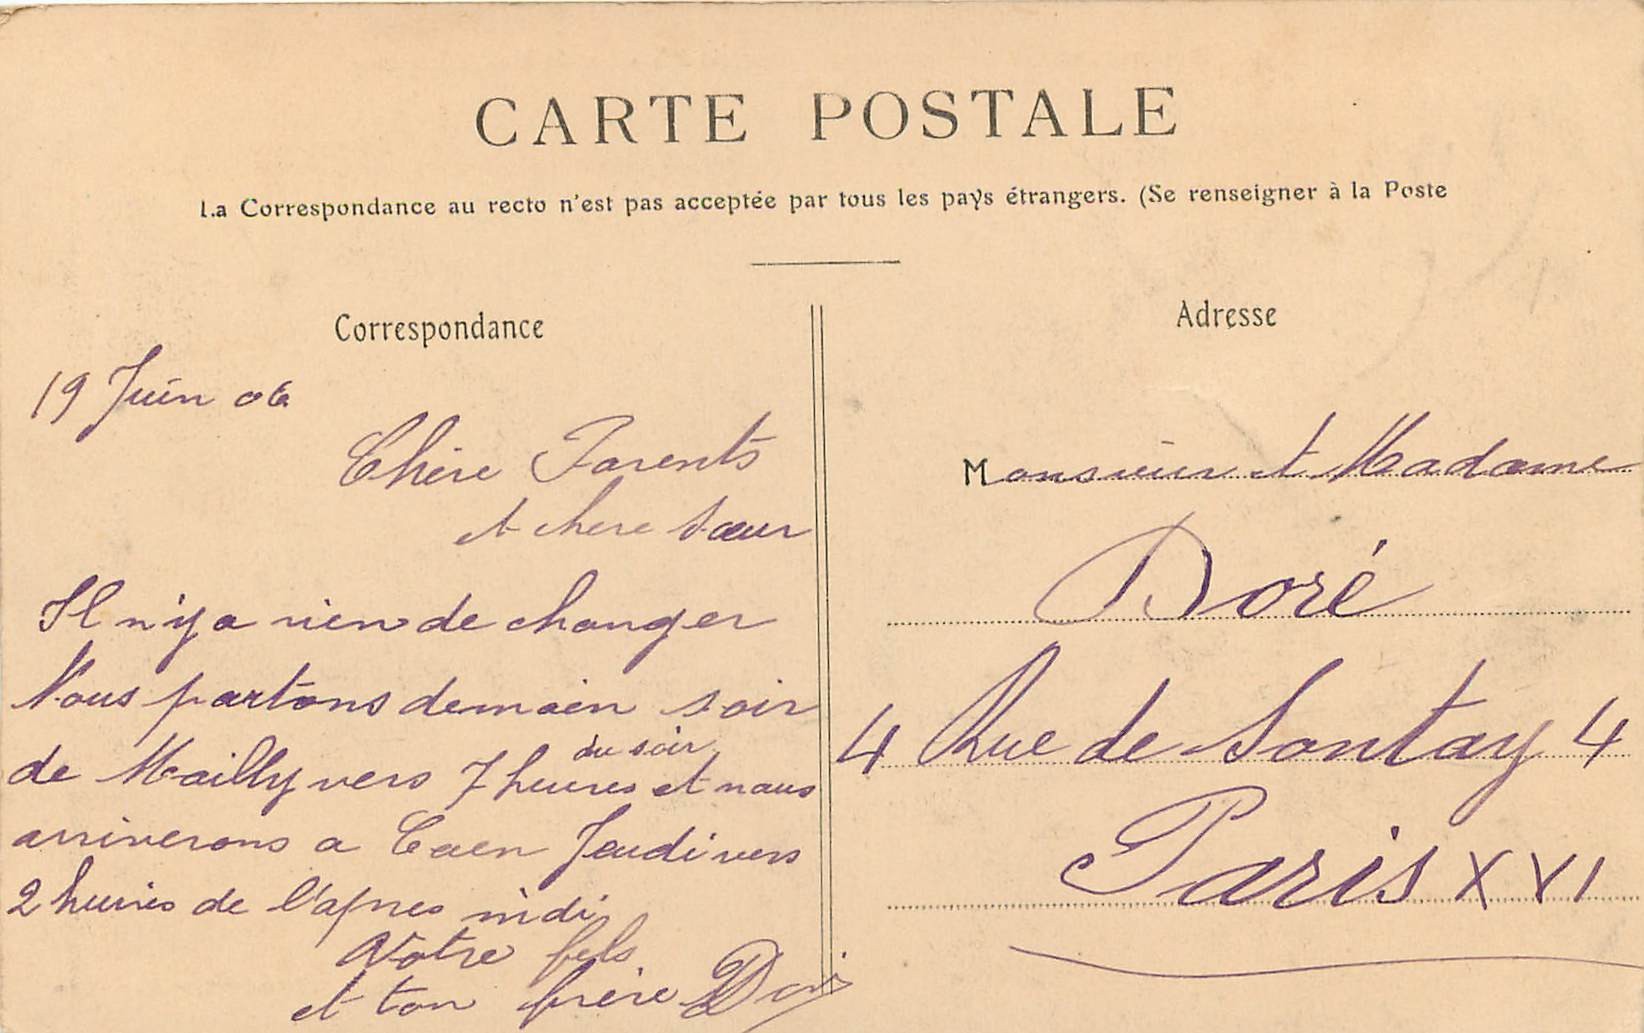 CARTE POSTALE
La Correspondance au recto n'est pas acceptée par tous les pays étrangers. (Se renseigner à la Poste
Correspondance
19 Juin 06
Chère Parents
et chere sœur
Il n'y a rien de changer
Nous partons demain soir
de Mailly vers 7 heures du soir et nous
arriverons a Caen Jeudi vers
2 heures de l'apres midi
Votre fils
et ton frère Doré
Adresse
Monsieur et Madame
Doré
4 Rue de Sontay 4
Paris XVI